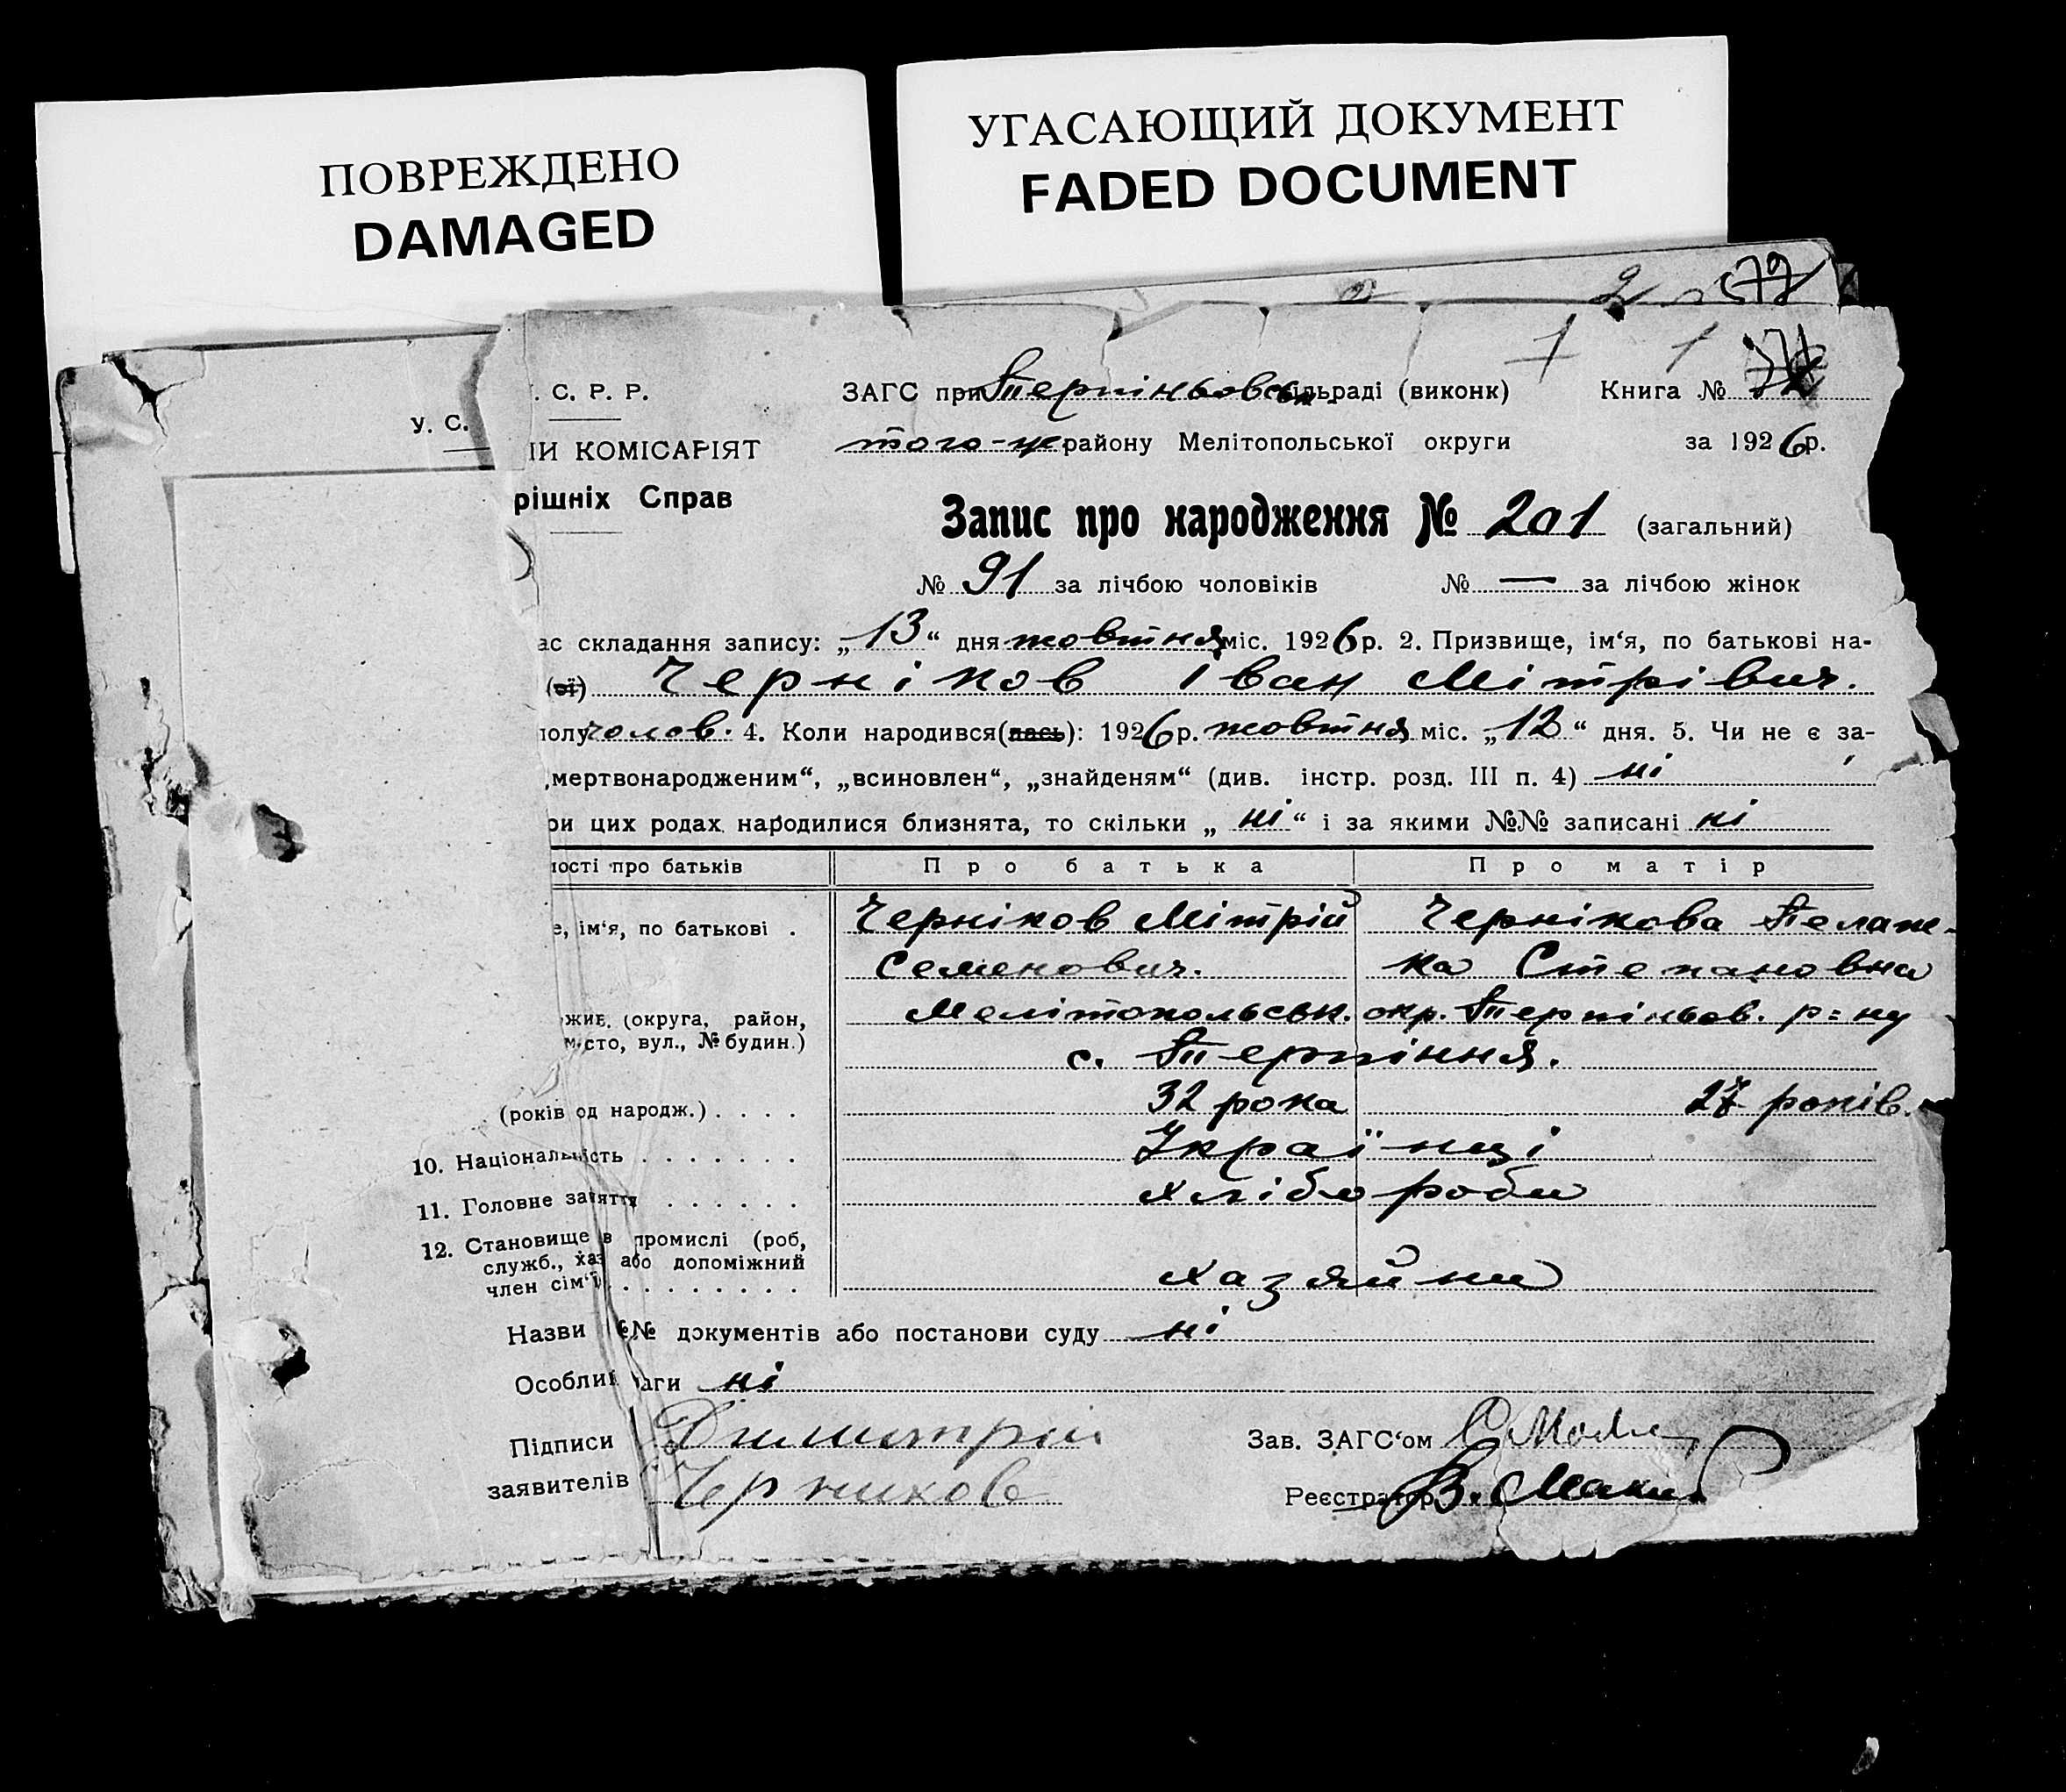 ПОВРЕЖДЕНО
DAMAGED
УГАСАЮЩИЙ ДОКУМЕНТ
FADED DOCUMENT
У. С.
. С. Р. Р.
ЗАГС при Терпіньовськ. сільраді (виконк) Книга №
ИЙ КОМІСАРІЯТ
того-ж району Мелітопольської округи за 1926 р.
рішніх Справ
Запис про народження № 201 (загальний)
№ 91 за лічбою чоловіків № — за лічбою жінок
ас складання запису: „13“ дня жовтня міс. 1926 р. 2. Призвище, ім‘я, по батькові на-
(ої) Черніков Іван Мітрівич.
полу чолов. 4. Коли народився(лась): 1926 р. жовтня міс. „12“ дня. 5. Чи не є за-
„мертвонародженим“, „всиновлен“, „знайденям“ (див. інстр. розд. III п. 4) ні
ри цих родах народилися близнята, то скільки „ні“ і за якими №№ записані ні
ності про батьків Про батька Про матір
е, ім‘я, по батькові . Черніков Мітрій Чернікова Пелаж-
Семенович. ка Степановна
жив. (округа, район, Мелітопольськ. окр. Терпіньов. р=ну
місто, вул., № будин.) с. Терпіння.
(років од народж.) . . . . 32 рока 27 років.
10. Національність . . . . . . . Українці
11. Головне заняття . . . . . . Хлібороби
12. Становище в промислі (роб,
служб., хаз або допоміжний
член сім‘ї . . . . . . . . Хазяйни
Назви №№ документів або постанови суду ні
Особливі ваги ні
Підписи Димитрий Зав. ЗАГС‘ом
заявителів Черников Реєстратор В.